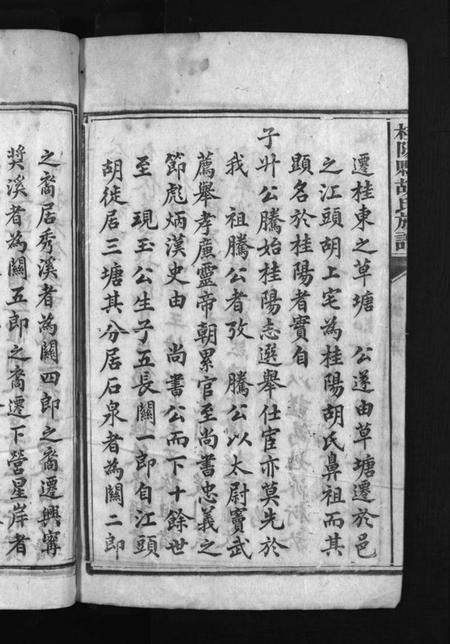 桂陽縣胡氏族譜
遷桂東之草塘 公遂由草塘遷於邑
之江頭胡上宅為桂陽胡氏鼻祖而其
顯名於桂陽者實自
子升公騰始桂陽志選舉仕宦亦莫先於
我 祖騰公者攷 騰公以太尉竇武
薦舉孝廉靈帝朝累官至尚書忠義之
節彪炳漢史由 尚書公而下十餘世
至 現玉公生子五長關一郎自江頭
胡徙居三塘其分居石泉者為關二郎
之裔居秀溪者為關四郎之裔遷興寧
奖溪者為關五郎之裔遷下營星岸者